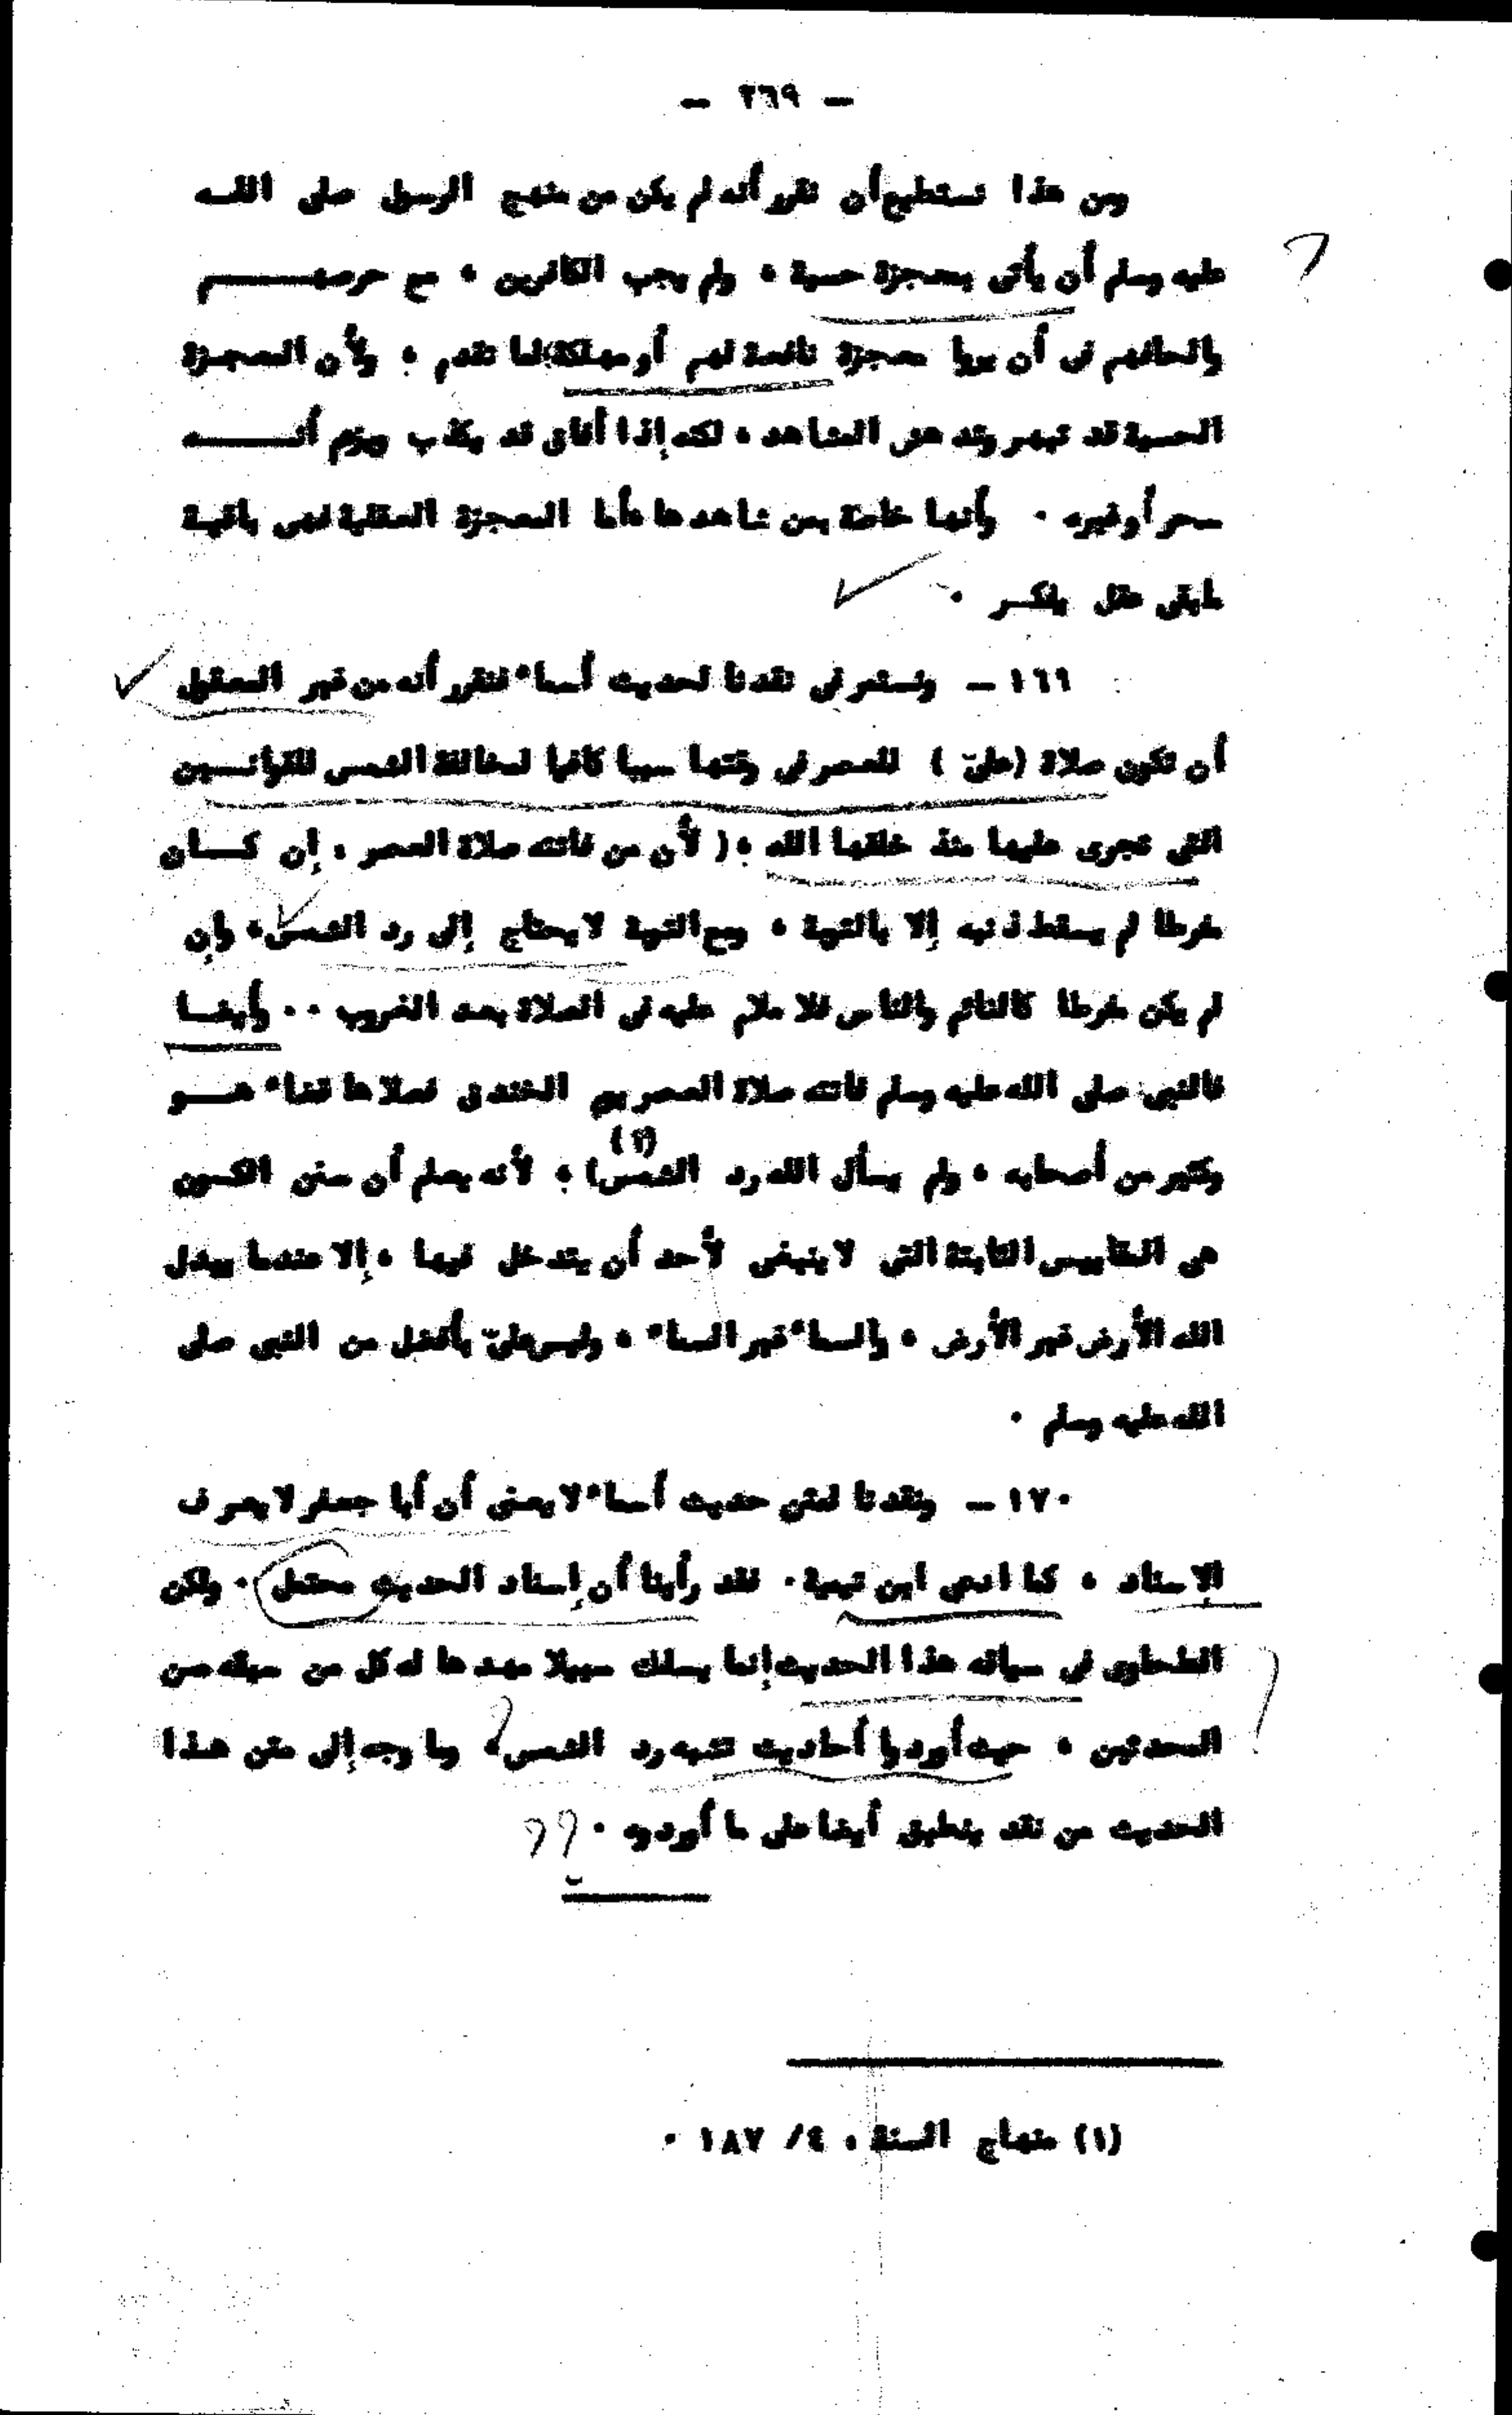 — ٢٦٩ —
ومن هذا نستطيع أن نقرر أنه لم يكن من منهج الرسول صلى اللـه
عليه وسلم أن يأتى بمعجزة حسية ، ولم يجب الكافرين ، مع حرصهـــــم
والحافهم فى أن يروا معجزة نافعة لهم أو مهلكة لما تقدم ، ولأن المعجـزة
الحسية قد تبهر وتدهش المشاهد ، لكنه إذا أفاق قد يكذب ويزعم أنـــــه
سحر أو غيره . وأنها خاصة بمن شاهدها أما المعجزة العقلية فهى باقيـة
مابقى عقل يفكـر .
١٦٩ — ونستمر فى نقدنا لحديث أسماء فنقرر أنه من غير المعقول
أن تكون صلاة (علىّ ) للعصر فى وقتها سببا كافيا لمخالفة الشمس للقوانـين
التى تجرى عليها منذ خلقها الله ، ( لأن من فاتته صلاة العصر ، إن كـان
مفرطا لم يسقط ذنبه إلا بالتوبة ، ومع التوبة لا يحتاج إلى رد الشمس، وإن
لم يكن مفرطا كالنائم والناسى فلا ملام عليه فى الصلاة بعد الغروب .. وأيضـا
فالنبى صلى الله عليه وسلم فاتته صلاة العصر يوم الخندق فصلاها قضاء هـو
وكثير من أصحابه ، ولم يسأل الله رد الشمس) (١) ، لأنه يعلم أن سنن الكـون
هى المقاييس الثابتة التى لا ينبغى لأحد أن يتدخل فيها ، إلا عندما يبدل
الله الأرض غير الأرض ، والسماء غير السماء ، وليس علىّ بأفضل من النبى صلى
الله عليه وسلم .
١٧٠ — ونقدنا لمتن حديث أسماء لا يعنى أن أبا جعفر لا يعرف
الإسناد ، كما ادعى ابن تيمية . فقد رأينا أن إسناد الحديث محتمل . ولكن
الطحاوى فى سياقه هذا الحديث إنما يسلك سبيلا مهدها له كل من سبقه مـن
المحدثين ، حيث أوردوا أحاديث تشبه رد الشمس، وما وجه إلى متن هـذا
الحديث من نقد ينطبق أيضا على ما أوردوه .
(١) منهاج السنة ، ٤/ ١٨٧ .